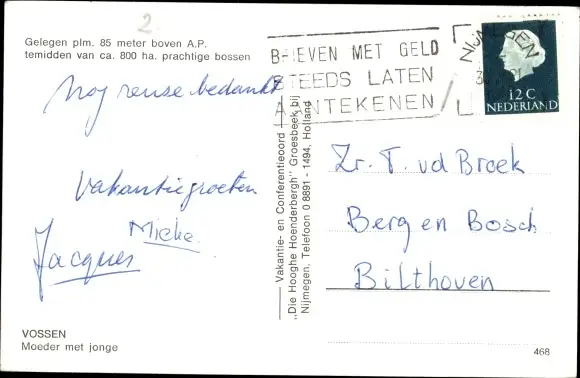 2
Gelegen plm. 85 meter boven A.P.
temidden van ca. 800 ha. prachtige bossen
BRIEVEN MET GELD
STEEDS LATEN
AANTEKENEN
NIJMEGEN
12 C
NEDERLAND
Nog reuse bedankt
Vakantiegroeten
Mieke.
Jacques
Vakantie- en Conferentieoord
„Die Hooghe Hoenderbergh" Groesbeek bij
Nijmegen. Telefoon 0 8891 - 1494, Holland
Zr. T. vd Broek
Berg en Bosch
Bilthoven
VOSSEN
Moeder met jonge
468